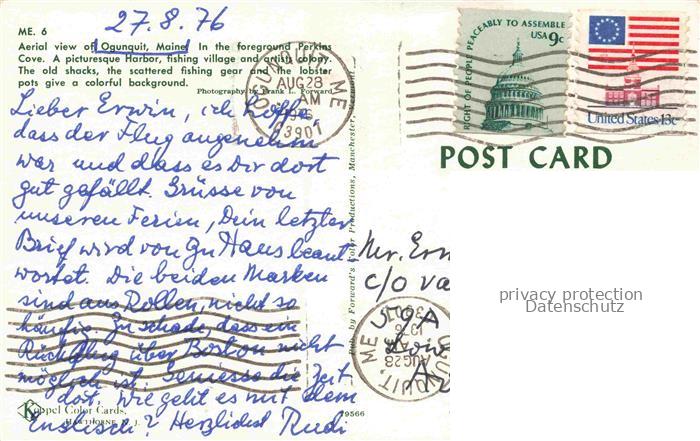 27.8.76
ME. 6
Aerial view of Ogunquit, Maine. In the foreground Perkins
Cove. A picturesque Harbor, fishing village and artists colony.
The old shacks, the scattered fishing gear and the lobster
pots give a colorful background.
Photography by Frank L. Forward
Lieber Erwin, ich hoffe
dass der Flug angenehm
war und dass es Dir dort
gut gefällt. Grüsse von
unseren Ferien, Dein letzter
Brief wird von zu Haus beant-
wortet. Die beiden Marken
sind aus Rollen, nicht so
häufig. Zu schade, dass ein
Rückflug über Boston nicht
möglich ist. Geniesse die Zeit
dort. Wie geht es mit dem
Englisch? Herzlichst Rudi
Koppel Color Cards,
HAWTHORNE, N. J.
79566
Pub. by Forward's Color Productions, Manchester, Vermont
OGUNQUIT, ME
AUG 28
AM
03907
RIGHT OF PEOPLE PEACEABLY TO ASSEMBLE
USA 9c
United States 13c
POST CARD
Mr. Erw
c/o va
OGUNQUIT, ME
AUG 28
AM
1976
privacy protection
Datenschutz